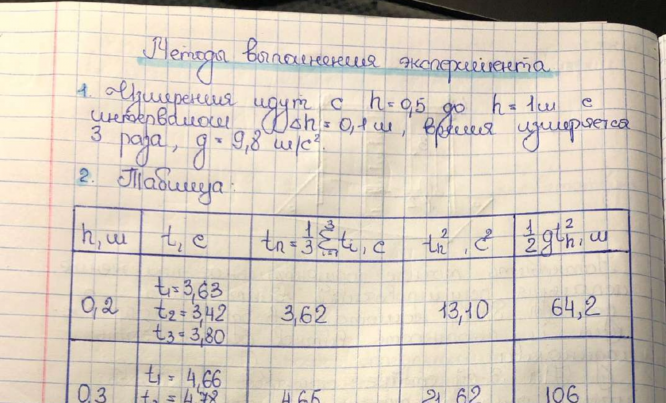 Методы выполнения эксперимента
1. Измерения идут с h=0,5 до h=1м с
интервалом Δh=0,1м, время измеряется
3 раза, g=9,8 м/с².
2. Таблица:
h, м | t, с | tₕ = 1/3 Σ³ᵢ₌₁ tᵢ, с | tₕ², с² | 1/2 gtₕ², м
0,2 | t₁=3,63 t₂=3,42 t₃=3,80 | 3,62 | 13,10 | 64,2
0,3 | t₁ = 4,66 t₂ = 4,78 | 4,65 | 21,62 | 106